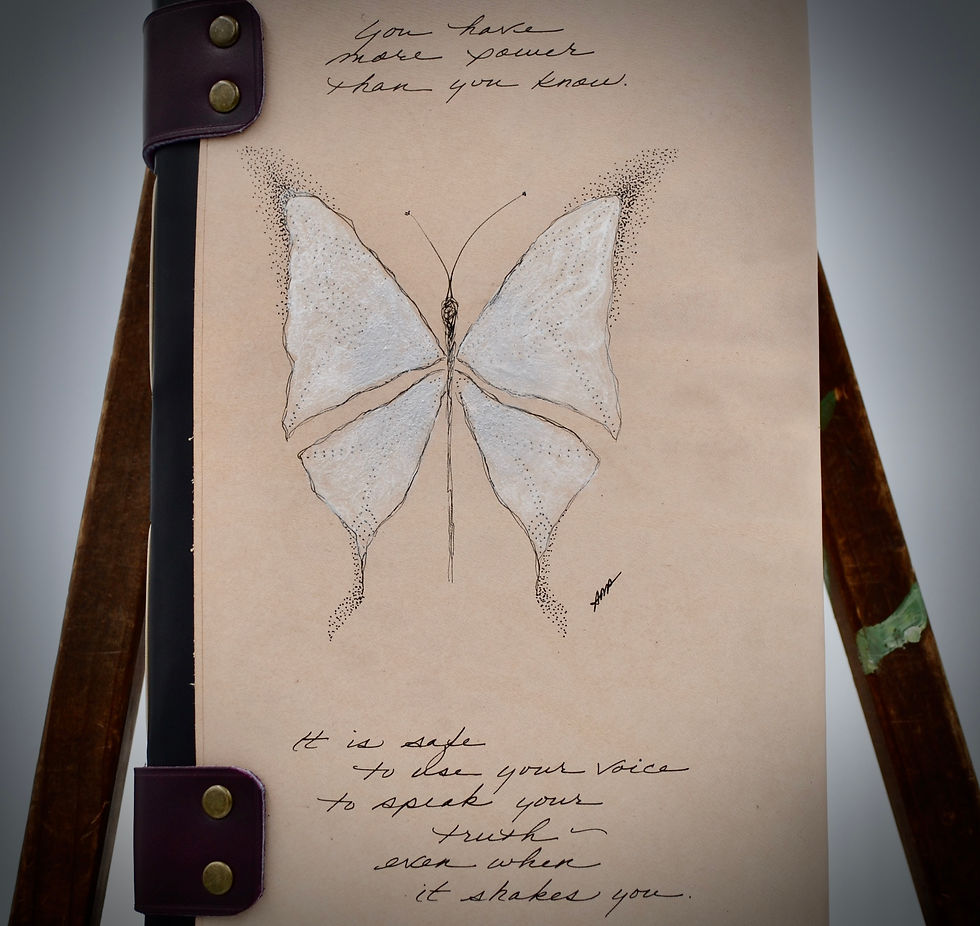 You have
more power
than you know.
It is safe
to use your voice
to speak your
truth ~
even when
it shakes you.